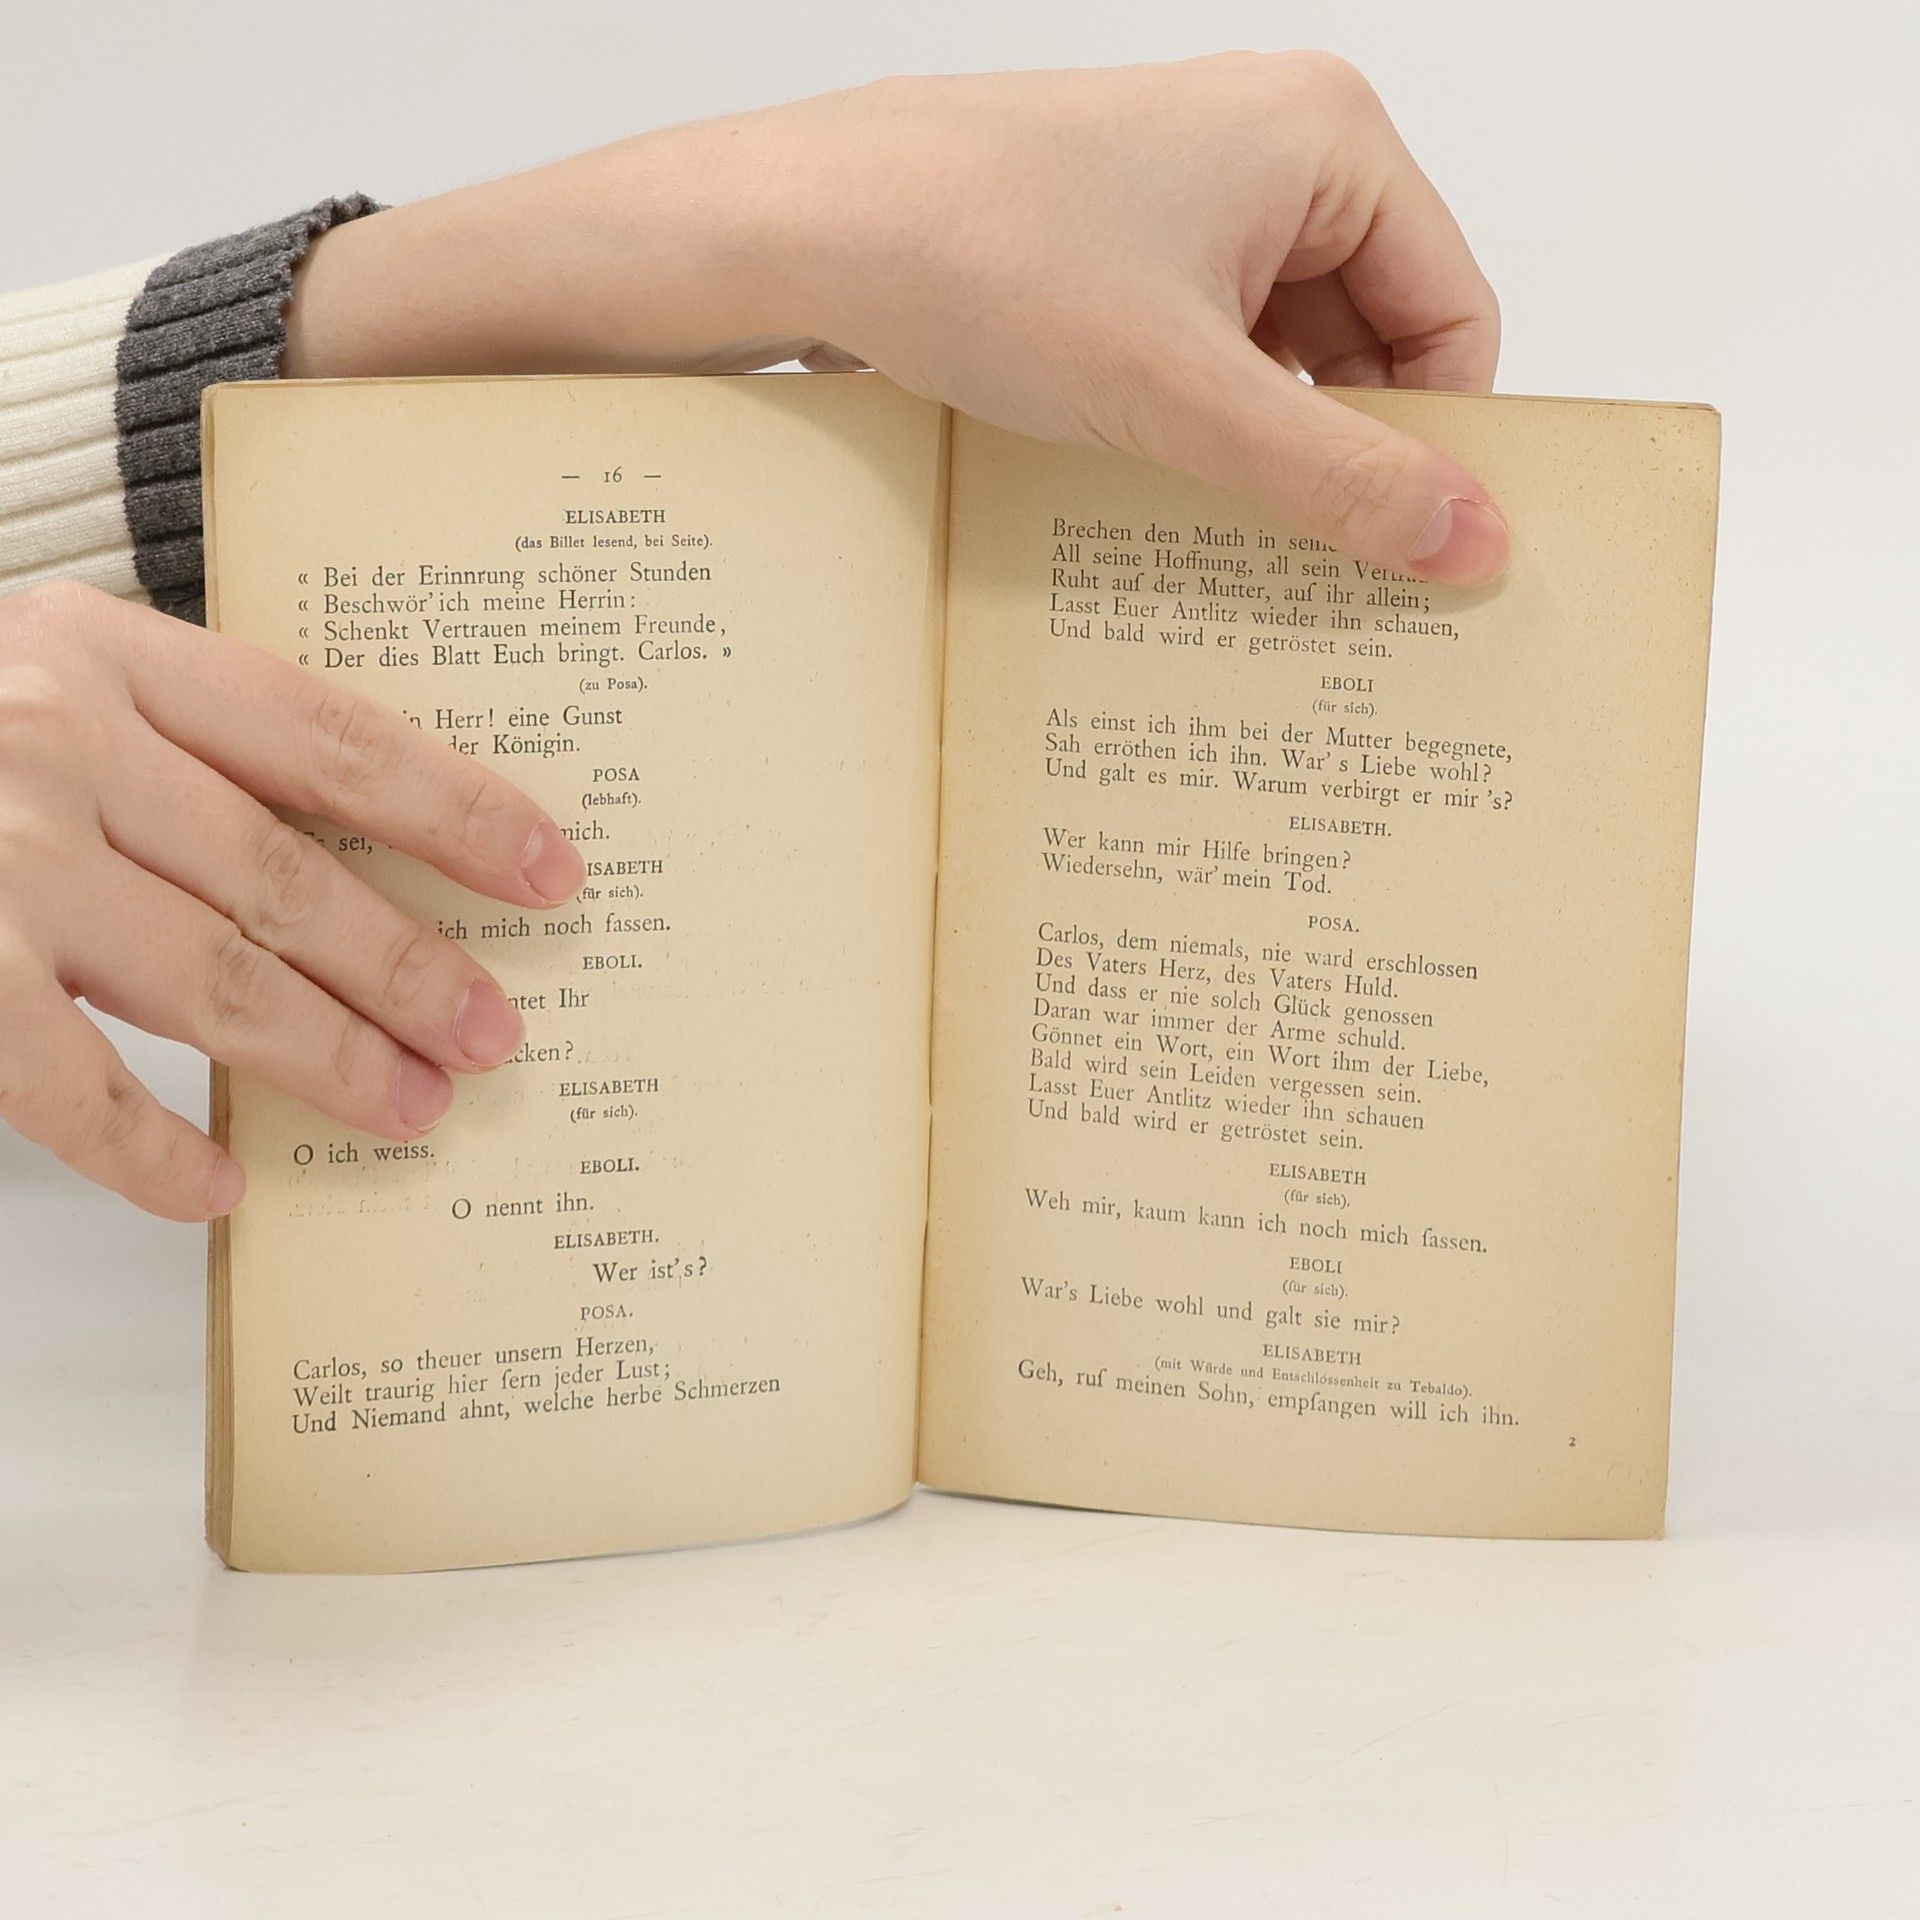 — 16 —
ELISABETH
(das Billet lesend, bei Seite).
« Bei der Erinnrung schöner Stunden
« Beschwör' ich meine Herrin:
« Schenkt Vertrauen meinem Freunde,
« Der dies Blatt Euch bringt. Carlos. »
(zu Posa).
Herr! eine Gunst
der Königin.
POSA
(lebhaft).
sei, mich.
ISABETH
(für sich).
ich mich noch fassen.
EBOLI.
Ihr
ELISABETH
(für sich).
O ich weiss.
EBOLI.
O nennt ihn.
ELISABETH.
Wer ist's?
POSA.
Carlos, so theuer unsern Herzen,
Weilt traurig hier fern jeder Lust;
Und Niemand ahnt, welche herbe Schmerzen
Brechen den Muth in
All seine Hoffnung, all sein
Ruht auf der Mutter, auf ihr allein;
Lasst Euer Antlitz wieder ihn schauen,
Und bald wird er getröstet sein.
EBOLI
(für sich).
Als einst ich ihm bei der Mutter begegnete,
Sah erröthen ich ihn. War' s Liebe wohl?
Und galt es mir. Warum verbirgt er mir 's?
ELISABETH.
Wer kann mir Hilfe bringen?
Wiedersehn, wär' mein Tod.
POSA.
Carlos, dem niemals, nie ward erschlossen
Des Vaters Herz, des Vaters Huld.
Und dass er nie solch Glück genossen
Daran war immer der Arme schuld.
Gönnet ein Wort, ein Wort ihm der Liebe,
Bald wird sein Leiden vergessen sein.
Lasst Euer Antlitz wieder ihn schauen
Und bald wird er getröstet sein.
ELISABETH
(für sich).
Weh mir, kaum kann ich noch mich fassen.
EBOLI
(für sich).
War's Liebe wohl und galt sie mir?
ELISABETH
(mit Würde und Entschlossenheit zu Tebaldo).
Geh, ruf meinen Sohn, empfangen will ich ihn.
2